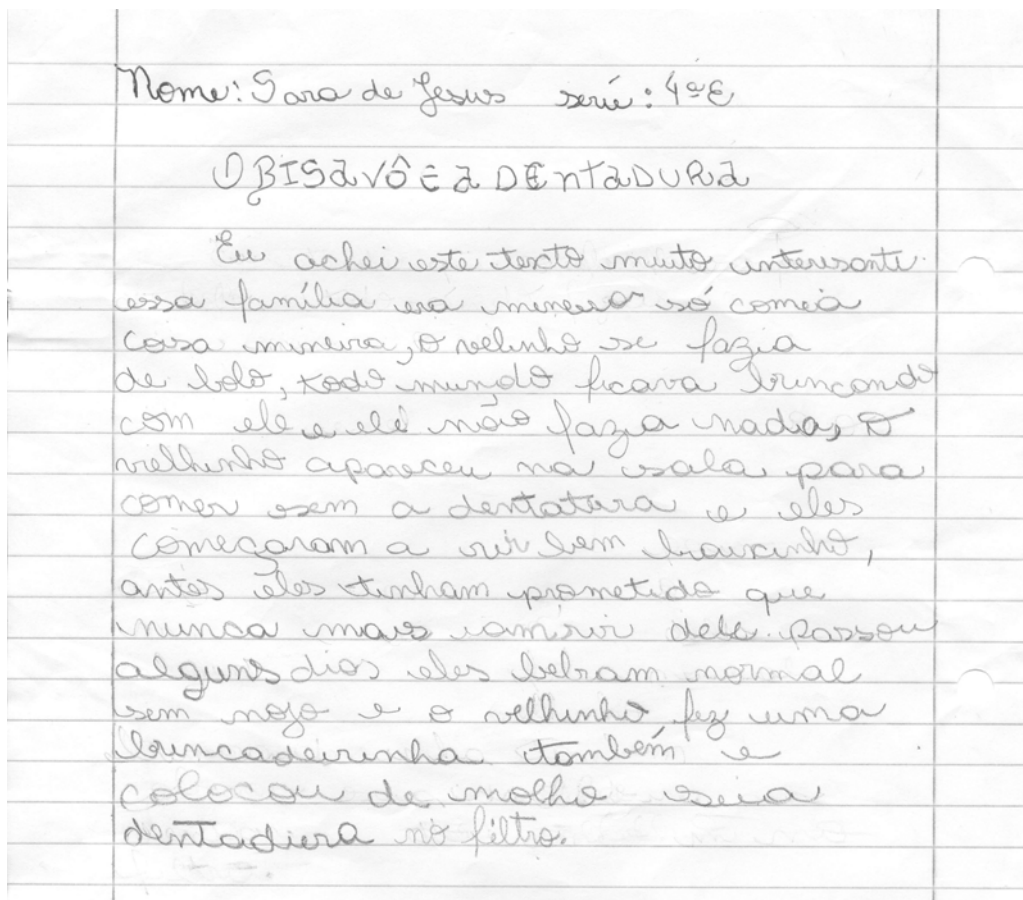 Nome: Sara de Jesus serie: 4ª E
O BISaVÔ E a DEntaDURa
Eu achei este texto muito interesante.
essa família era mineira só comia
coisa mineira, o velinho se fazia
de bobo, todo mundo ficava brincando
com ele e ele não fazia nada, O
vielhinho apareceu na sala para
comer sem a dentatura e eles
começaram a rir bem bauxinho,
antes eles tinham prometido que
nunca mais iam rir dele. Passou
alguns dias eles bebiam normal
sem nojo e o velhinho fez uma
brincadeirinha também e
colocou de molho sua
dentadiera no filtro.